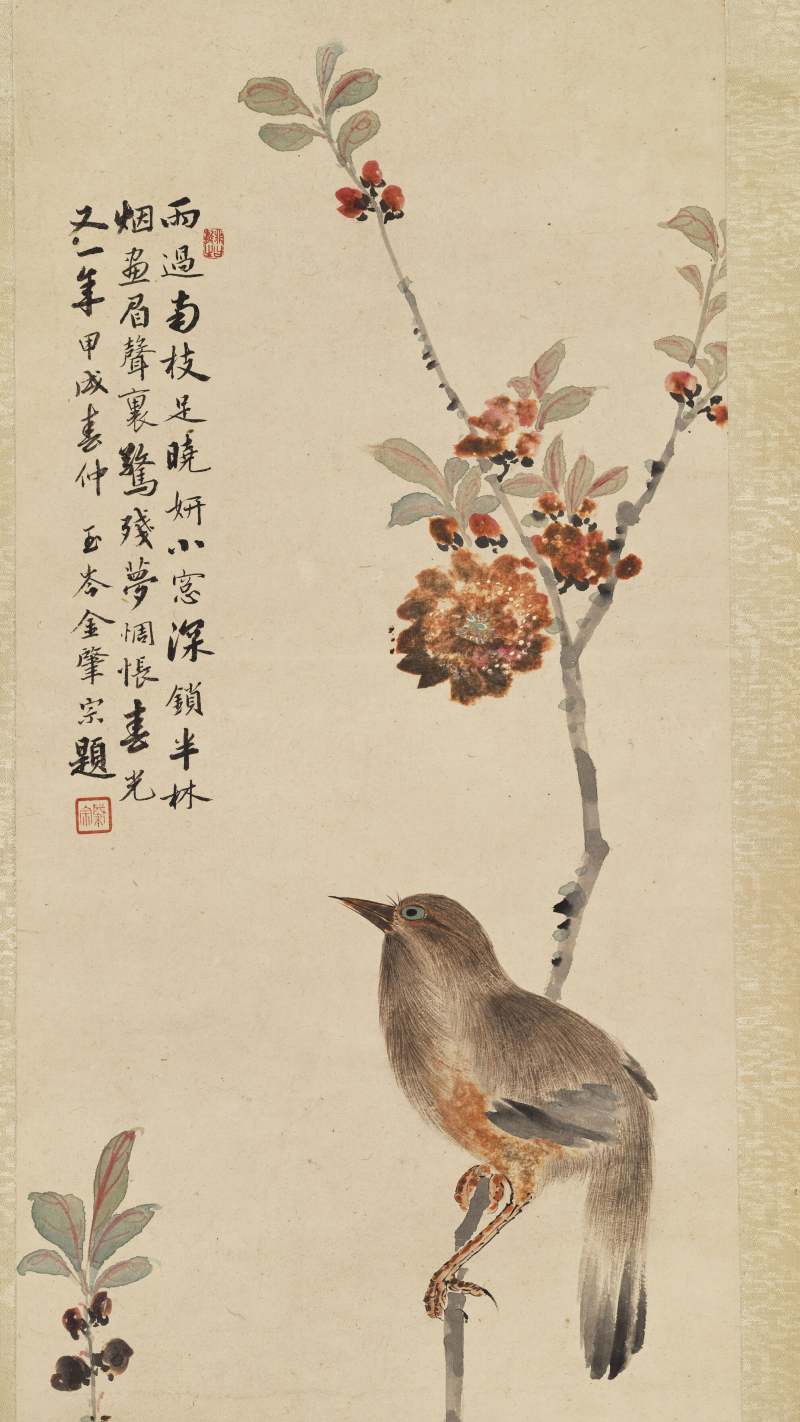 雨過南枝足曉妍小窓深鎖半林
烟畫眉聲裏驚殘夢惆悵春光
又一年 甲戌春仲 玉岑金肇宗題